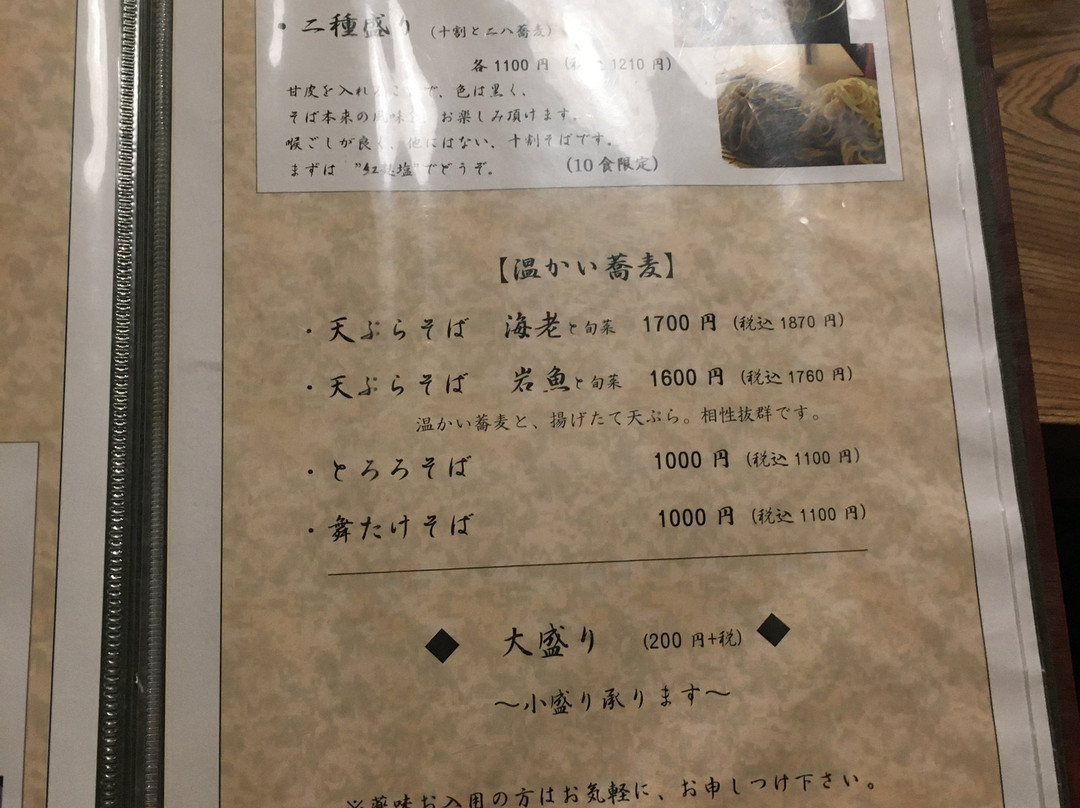 ・二種盛り (十割と二八蕎麦)
各1100円 (税込1210円)
甘皮を入れることで、色は黒く、
そば本来の風味を、お楽しみ頂けます。
喉ごしが良く、他にはない、十割そばです。
まずは "紅麹塩"でどうぞ。 (10食限定)
【温かい蕎麦】
・天ぷらそば 海老と旬菜 1700円 (税込1870円)
・天ぷらそば 岩魚と旬菜 1600円 (税込1760円)
温かい蕎麦と、揚げたて天ぷら。相性抜群です。
・とろろそば 1000円 (税込1100円)
・舞たけそば 1000円 (税込1100円)
◆ 大盛り (200円+税) ◆
～小盛り承ります～
※薬味お入用の方はお気軽に、お申しつけ下さい。